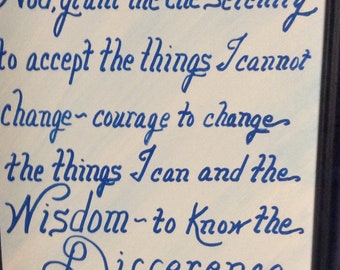 God, grant me the serenity
to accept the things I cannot
change~ courage to change
the things I can and the
Wisdom~to Know the
Difference